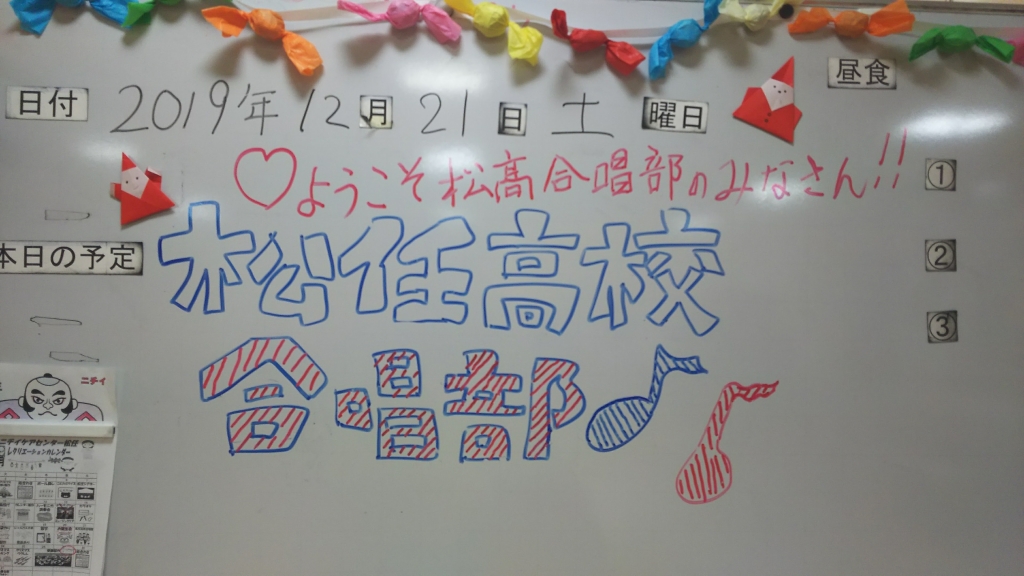 日付 2019年12月21日 土 曜日
昼食
♡ようこそ松高合唱部のみなさん!!
①
本日の予定
松任高校
②
合唱部
③
ニチイ
ニチイケアセンター松任
レクリエーションカレンダー